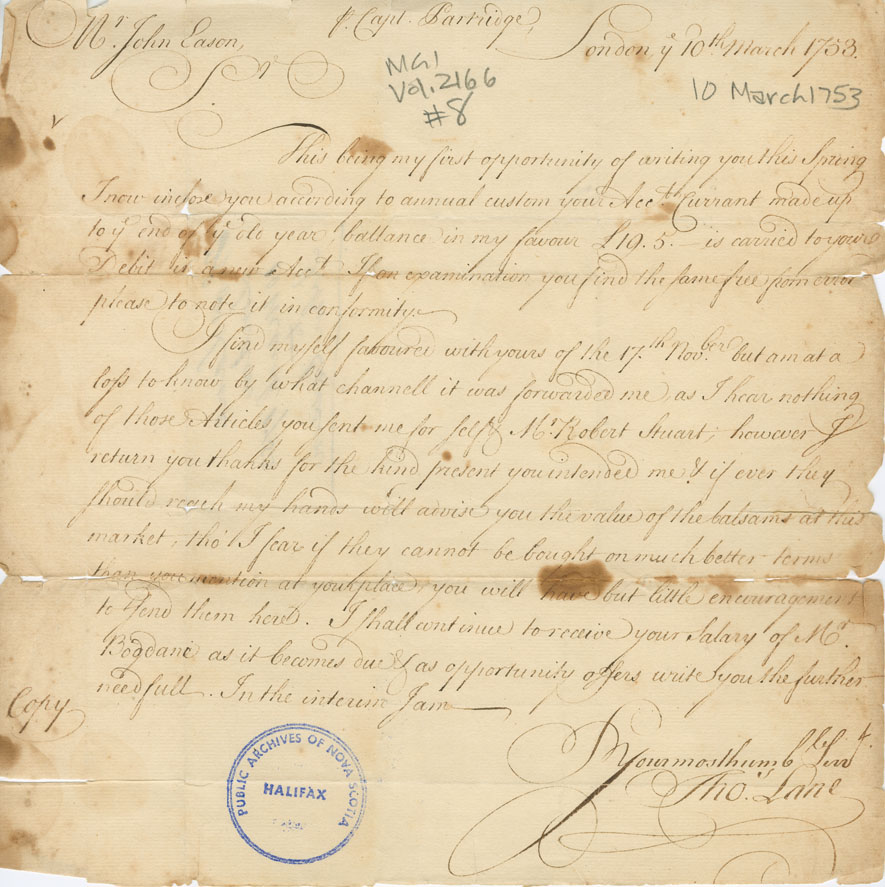 p. Capt. Partridge,
Mr. John Eason,
London ye 10th March 1753.
Sr.
MG1
Vol. 2166
#8
10 March 1753
This being my first opportunity of writing you this Spring
I now inclose you according to annual custom your Acct. Currant made up
to ye end of ye old year, ballance in my favour £19.5.— is carried to your
Debit in a new Acct. If on examination you find the same free from error
please to note it in conformity.
I find myself favoured with yours of the 17.th Nov.ber but am at a
loss to know by what channell it was forwarded me, as I hear nothing
of those Articles you sent me for self & Mr. Robert Stuart; however I
return you thanks for the kind present you intended me & if ever they
should reach my hands will advise you the value of the balsams at this
market, tho' I fear if they cannot be bought on much better terms
than you mention at your place, you will have but little encouragement
to send them here. I shall continue to receive your Salary of Mr.
Bogdani as it becomes due & as opportunity offers write you the further
needfull. In the interim I am
Copy
Sr. Your most humb.le Serv.t
Tho.s Lane
PUBLIC ARCHIVES OF NOVA SCOTIA
HALIFAX